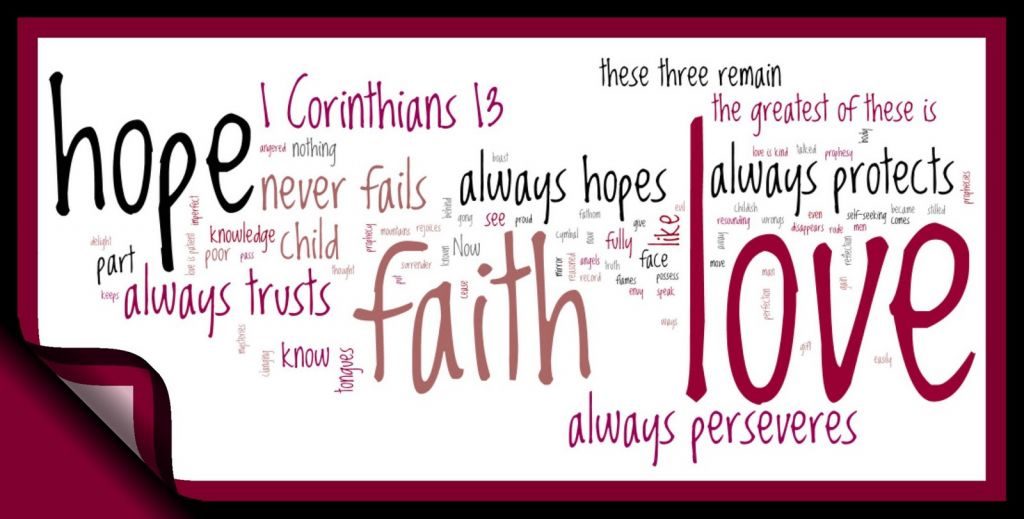 these three remain
1 Corinthians 13
the greatest of these is
hope
angered
nothing
boast
love is kind
talked
prophesy
body
never fails
always hopes
always protects
prophecies
imperfect
behind
gong
see
proud
fathom
give
evil
like
childish
resounding
wrongs
even
disappears
rude
men
self-seeking
became
comes
stilled
delight
part
love is patient
knowledge
poor
pass
child
prophecy
mountains
rejoices
known
Now
cymbal
now
fully
face
away
move
reflection
keeps
always trusts
thought
put
surrender
cease
faith
mirror
reasoned
angels
record
truth
flames
envy
possess
speak
love
man
perfection
gain
mysteries
clanging
know
tongues
ways
gift
easily
always perseveres